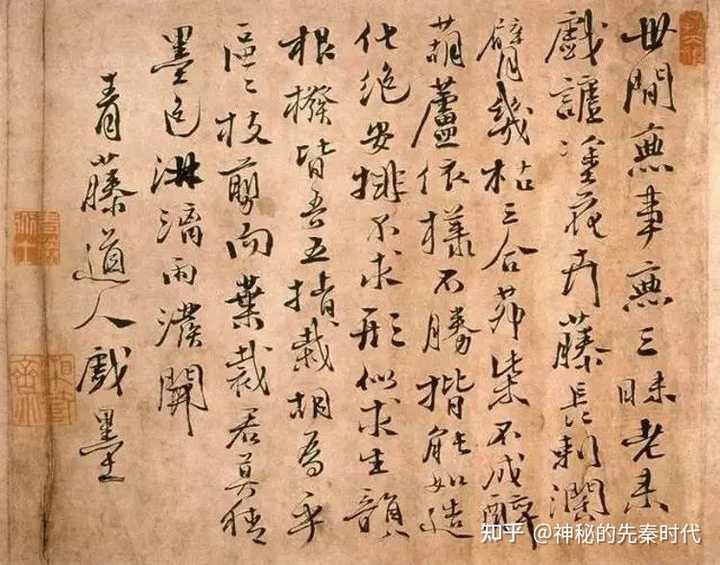 世間無事無三昧老來
戲謔塗花卉藤長刺闊
臂幾枯三合茆柴不成醉
葫蘆依樣不勝揩能如造
化絕安排不求形似求生韻
根撥皆吾五指栽胡為乎
區〻枝剪而葉裁君莫猜
墨色淋漓雨潑開
青藤道人戲墨
知乎 @神秘的先秦时代